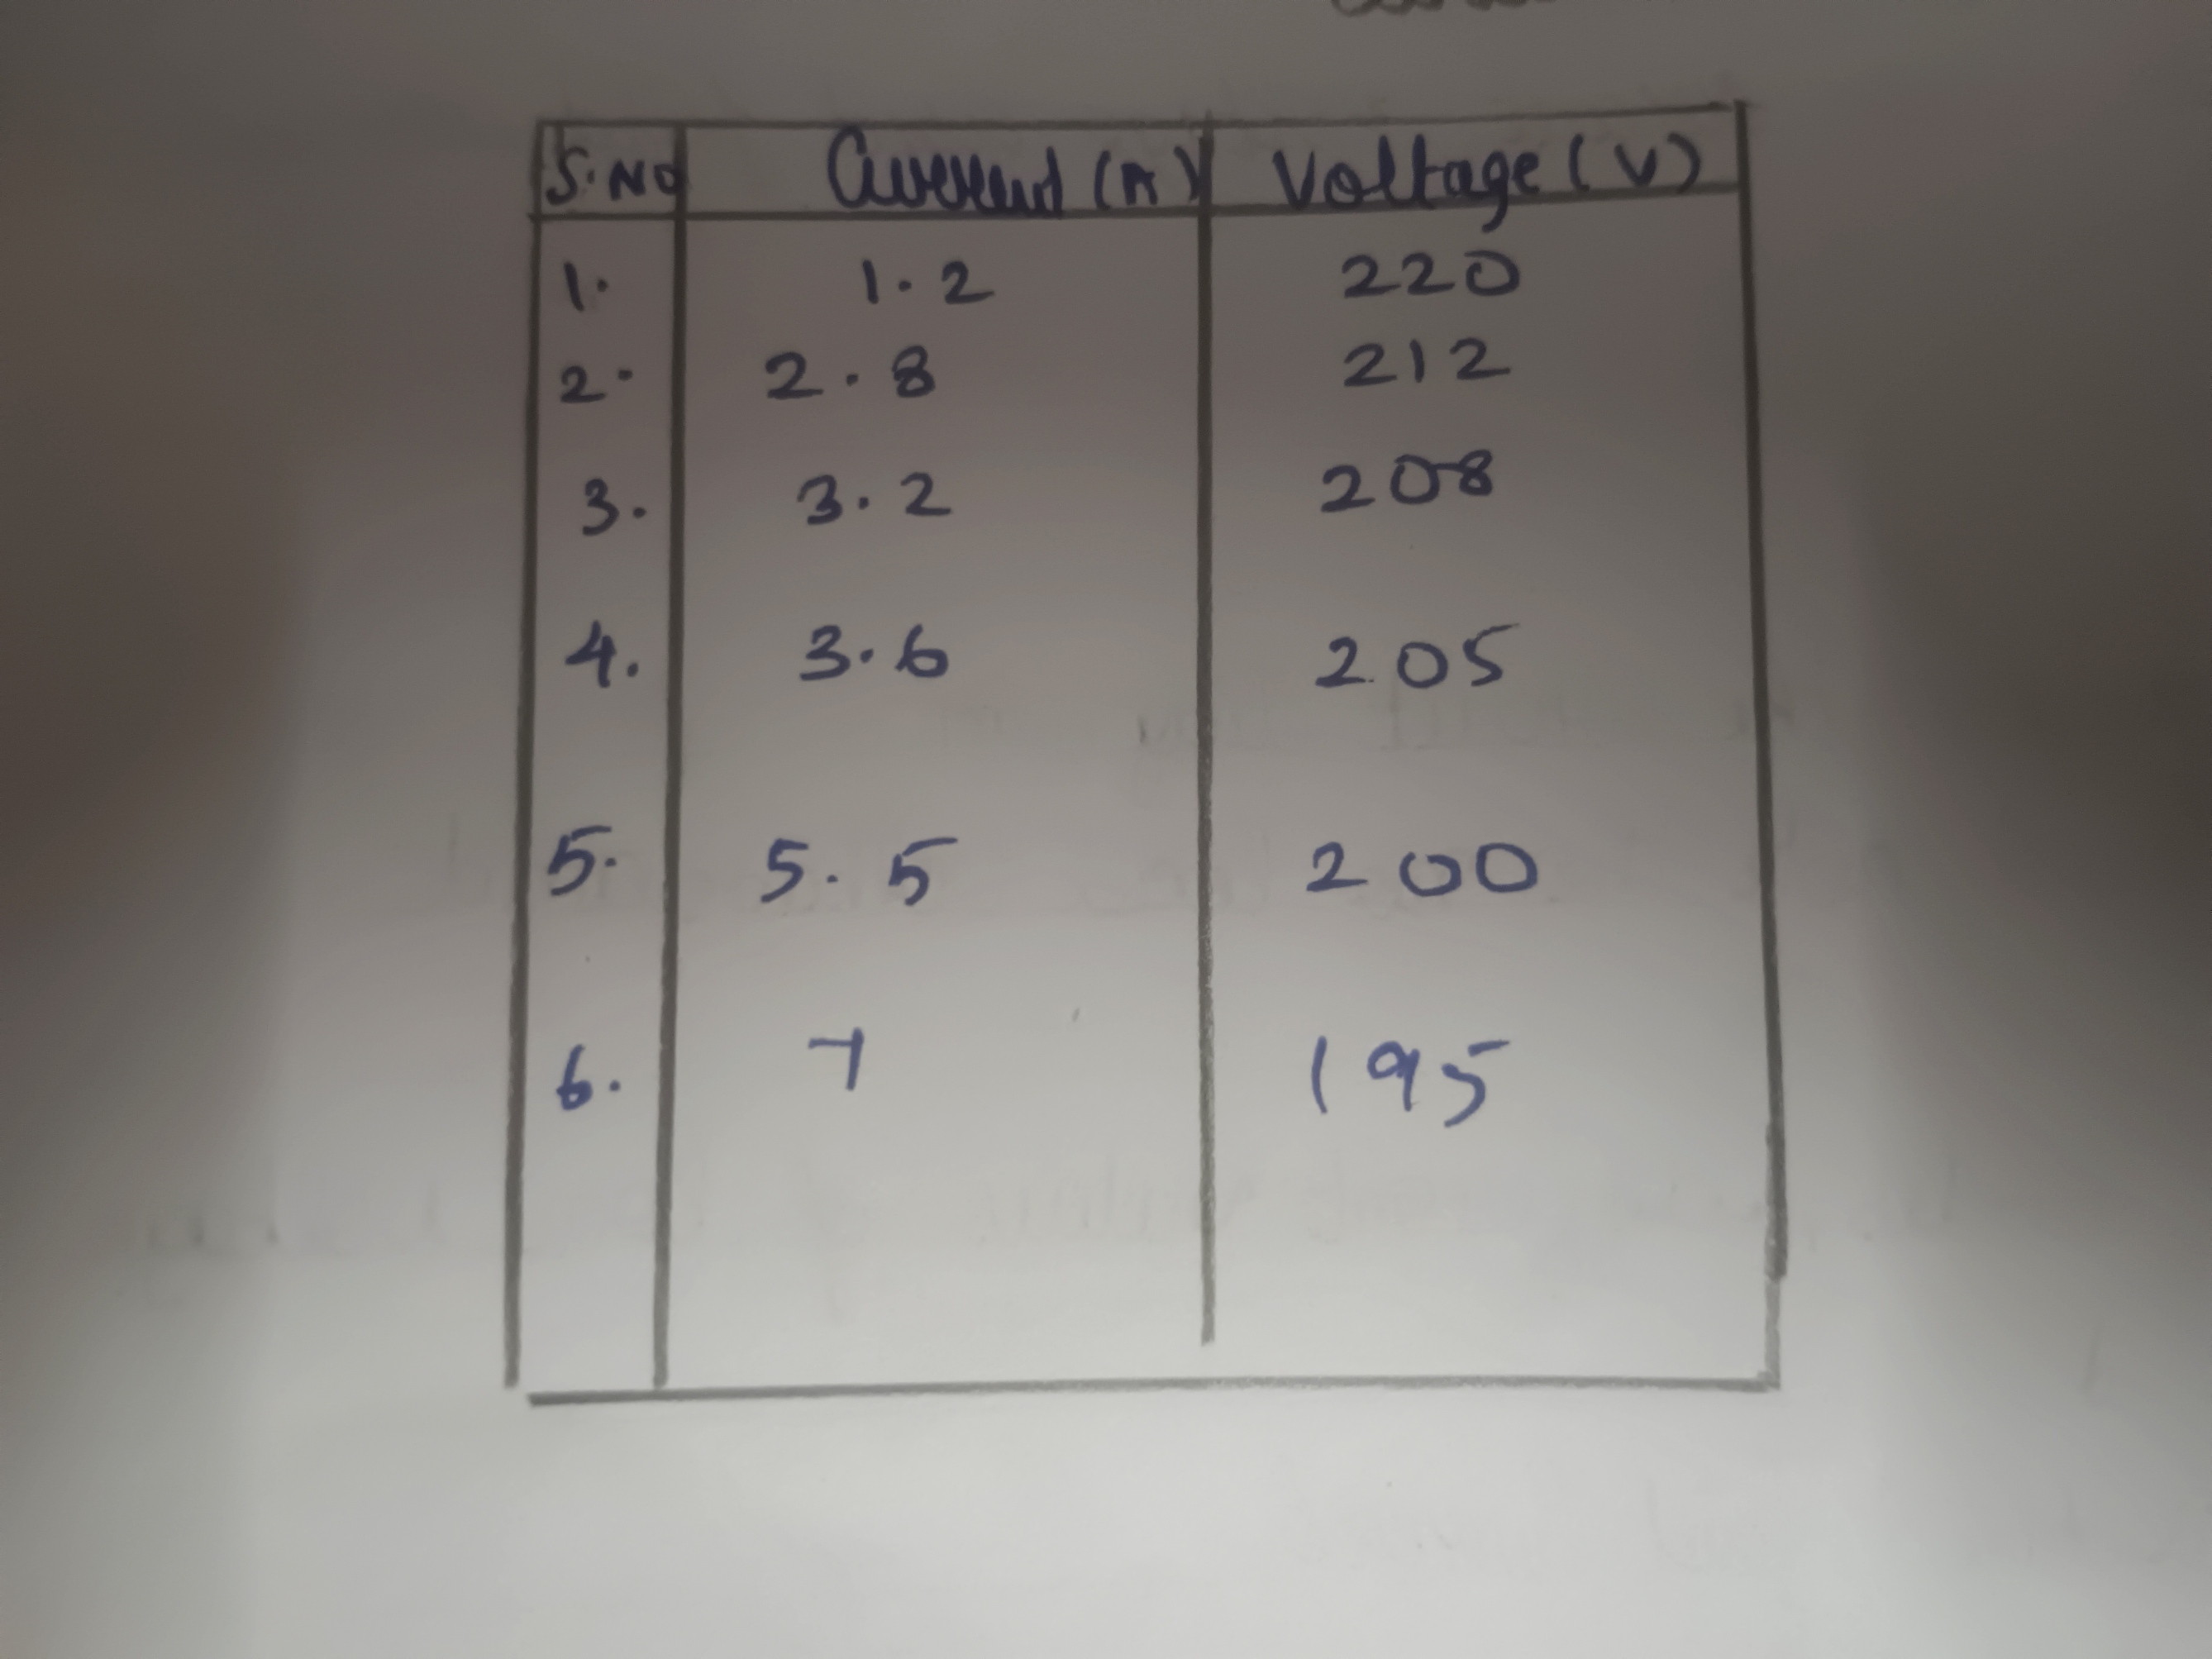 S.No Current (A) Voltage (V)
1. 1.2 220
2. 2.8 212
3. 3.2 208
4. 3.6 205
5. 5.5 200
6. 7 195